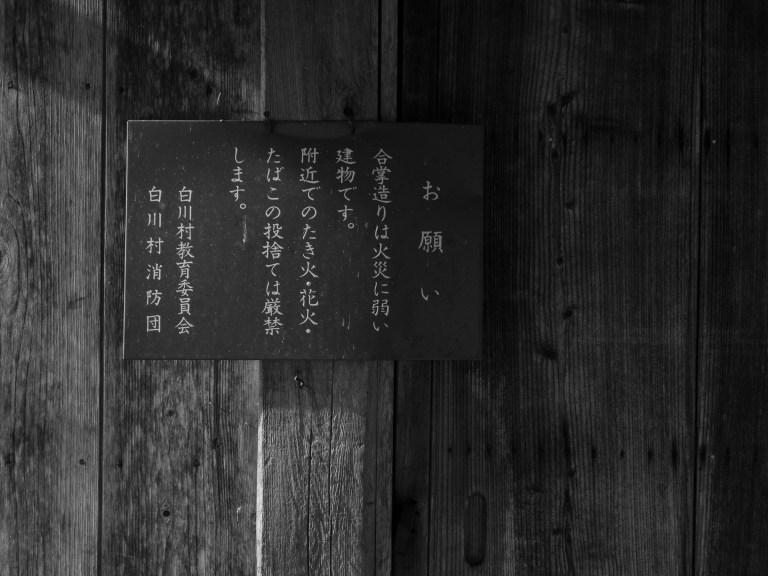 お願い
合掌造りは火災に弱い
建物です。
附近でのたき火・花火・
たばこの投捨ては厳禁
します。
白川村教育委員会
白川村消防団